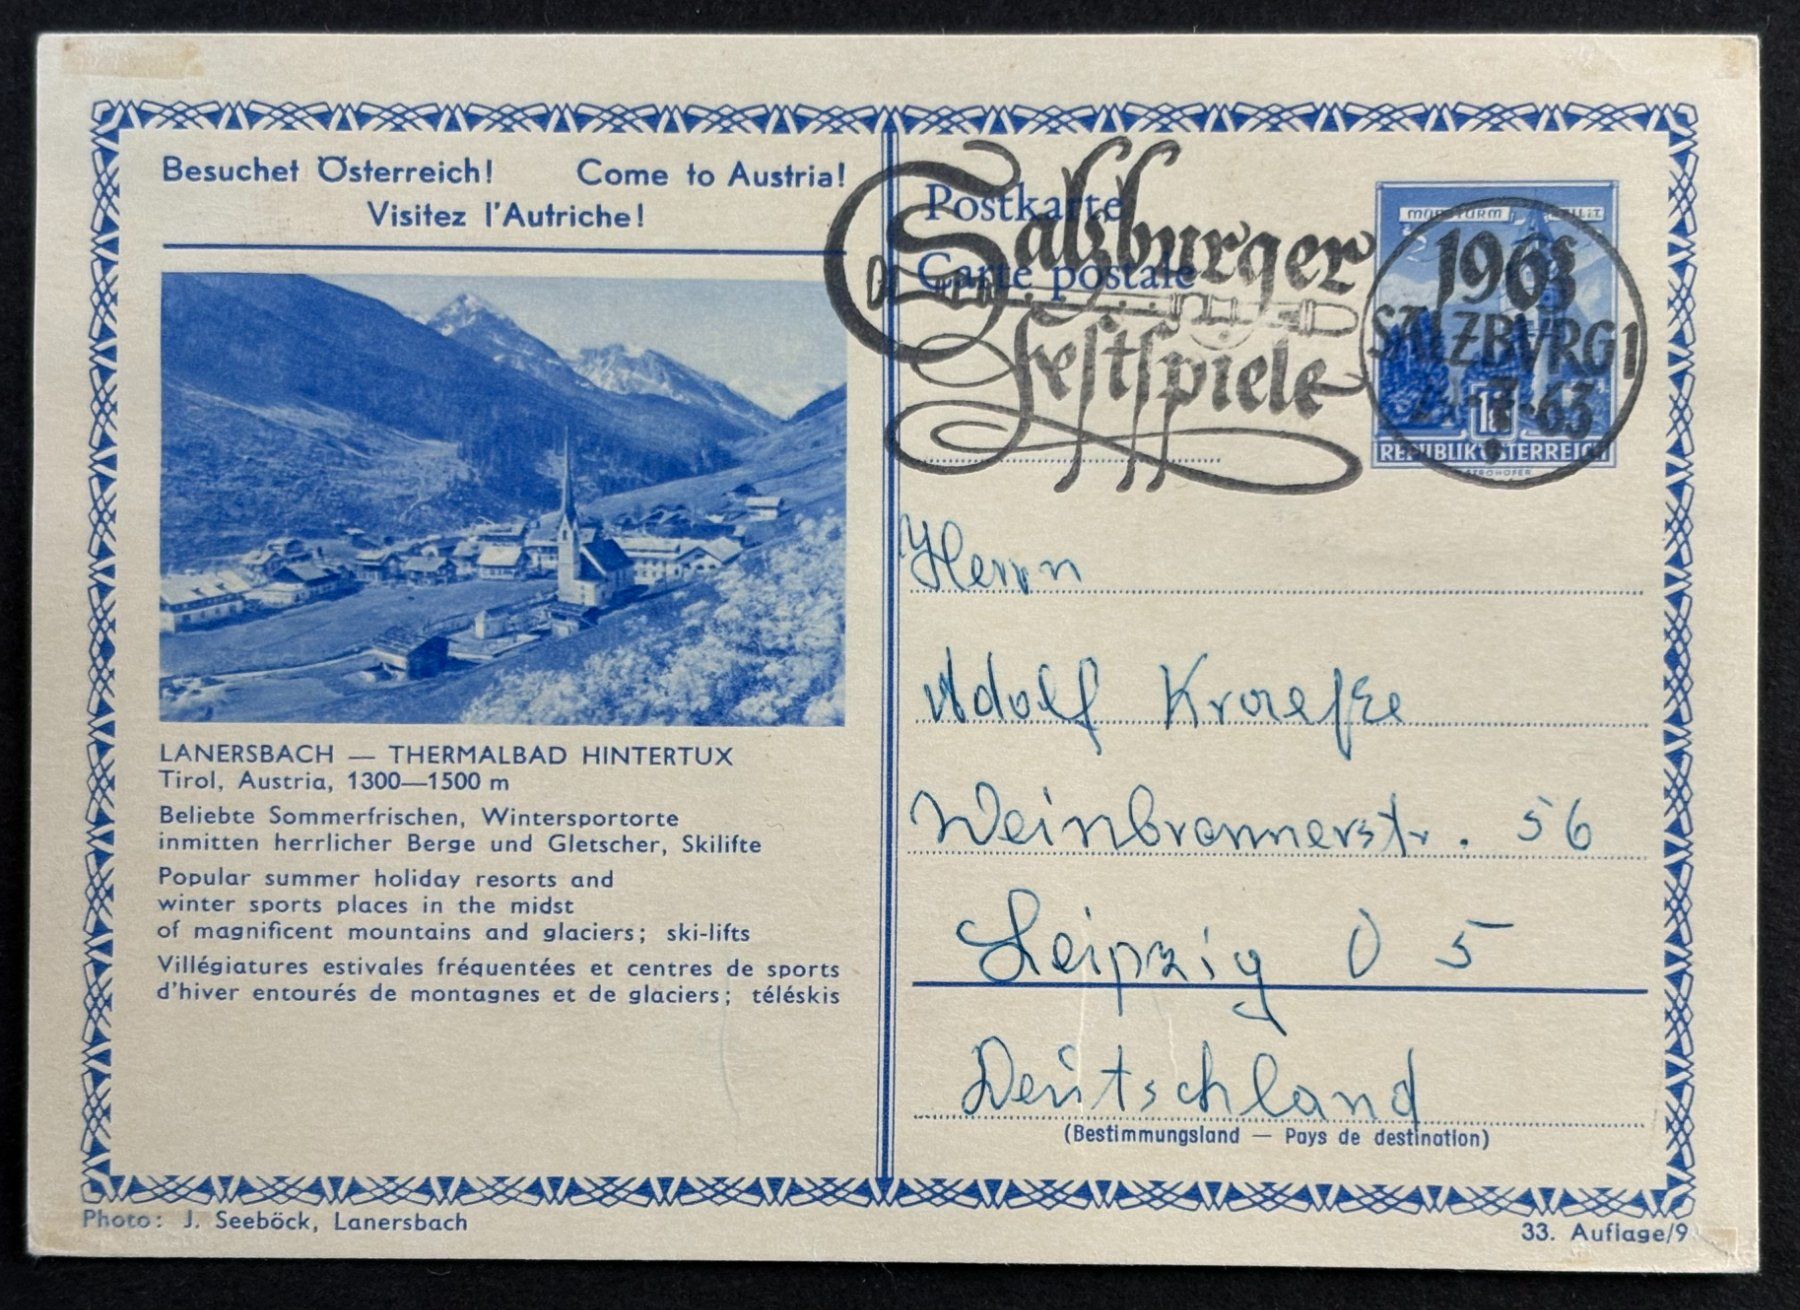 Besuchet Österreich! Come to Austria!
Visitez l'Autriche!
LANERSBACH — THERMALBAD HINTERTUX
Tirol, Austria, 1300—1500 m
Beliebte Sommerfrischen, Wintersportorte
inmitten herrlicher Berge und Gletscher, Skilifte
Popular summer holiday resorts and
winter sports places in the midst
of magnificent mountains and glaciers; ski-lifts
Villégiatures estivales fréquentées et centres de sports
d'hiver entourés de montagnes et de glaciers; téléskis
Photo: J. Seeböck, Lanersbach
Postkarte
Carte postale
Salzburger
Festspiele
1963
SALZBVRG 1
7.-63
REPUBLIK ÖSTERREICH
Herrn
Adolf
Weinbrennerstr. 56
Leipzig O 5
Deutschland
(Bestimmungsland — Pays de destination)
33. Auflage/9